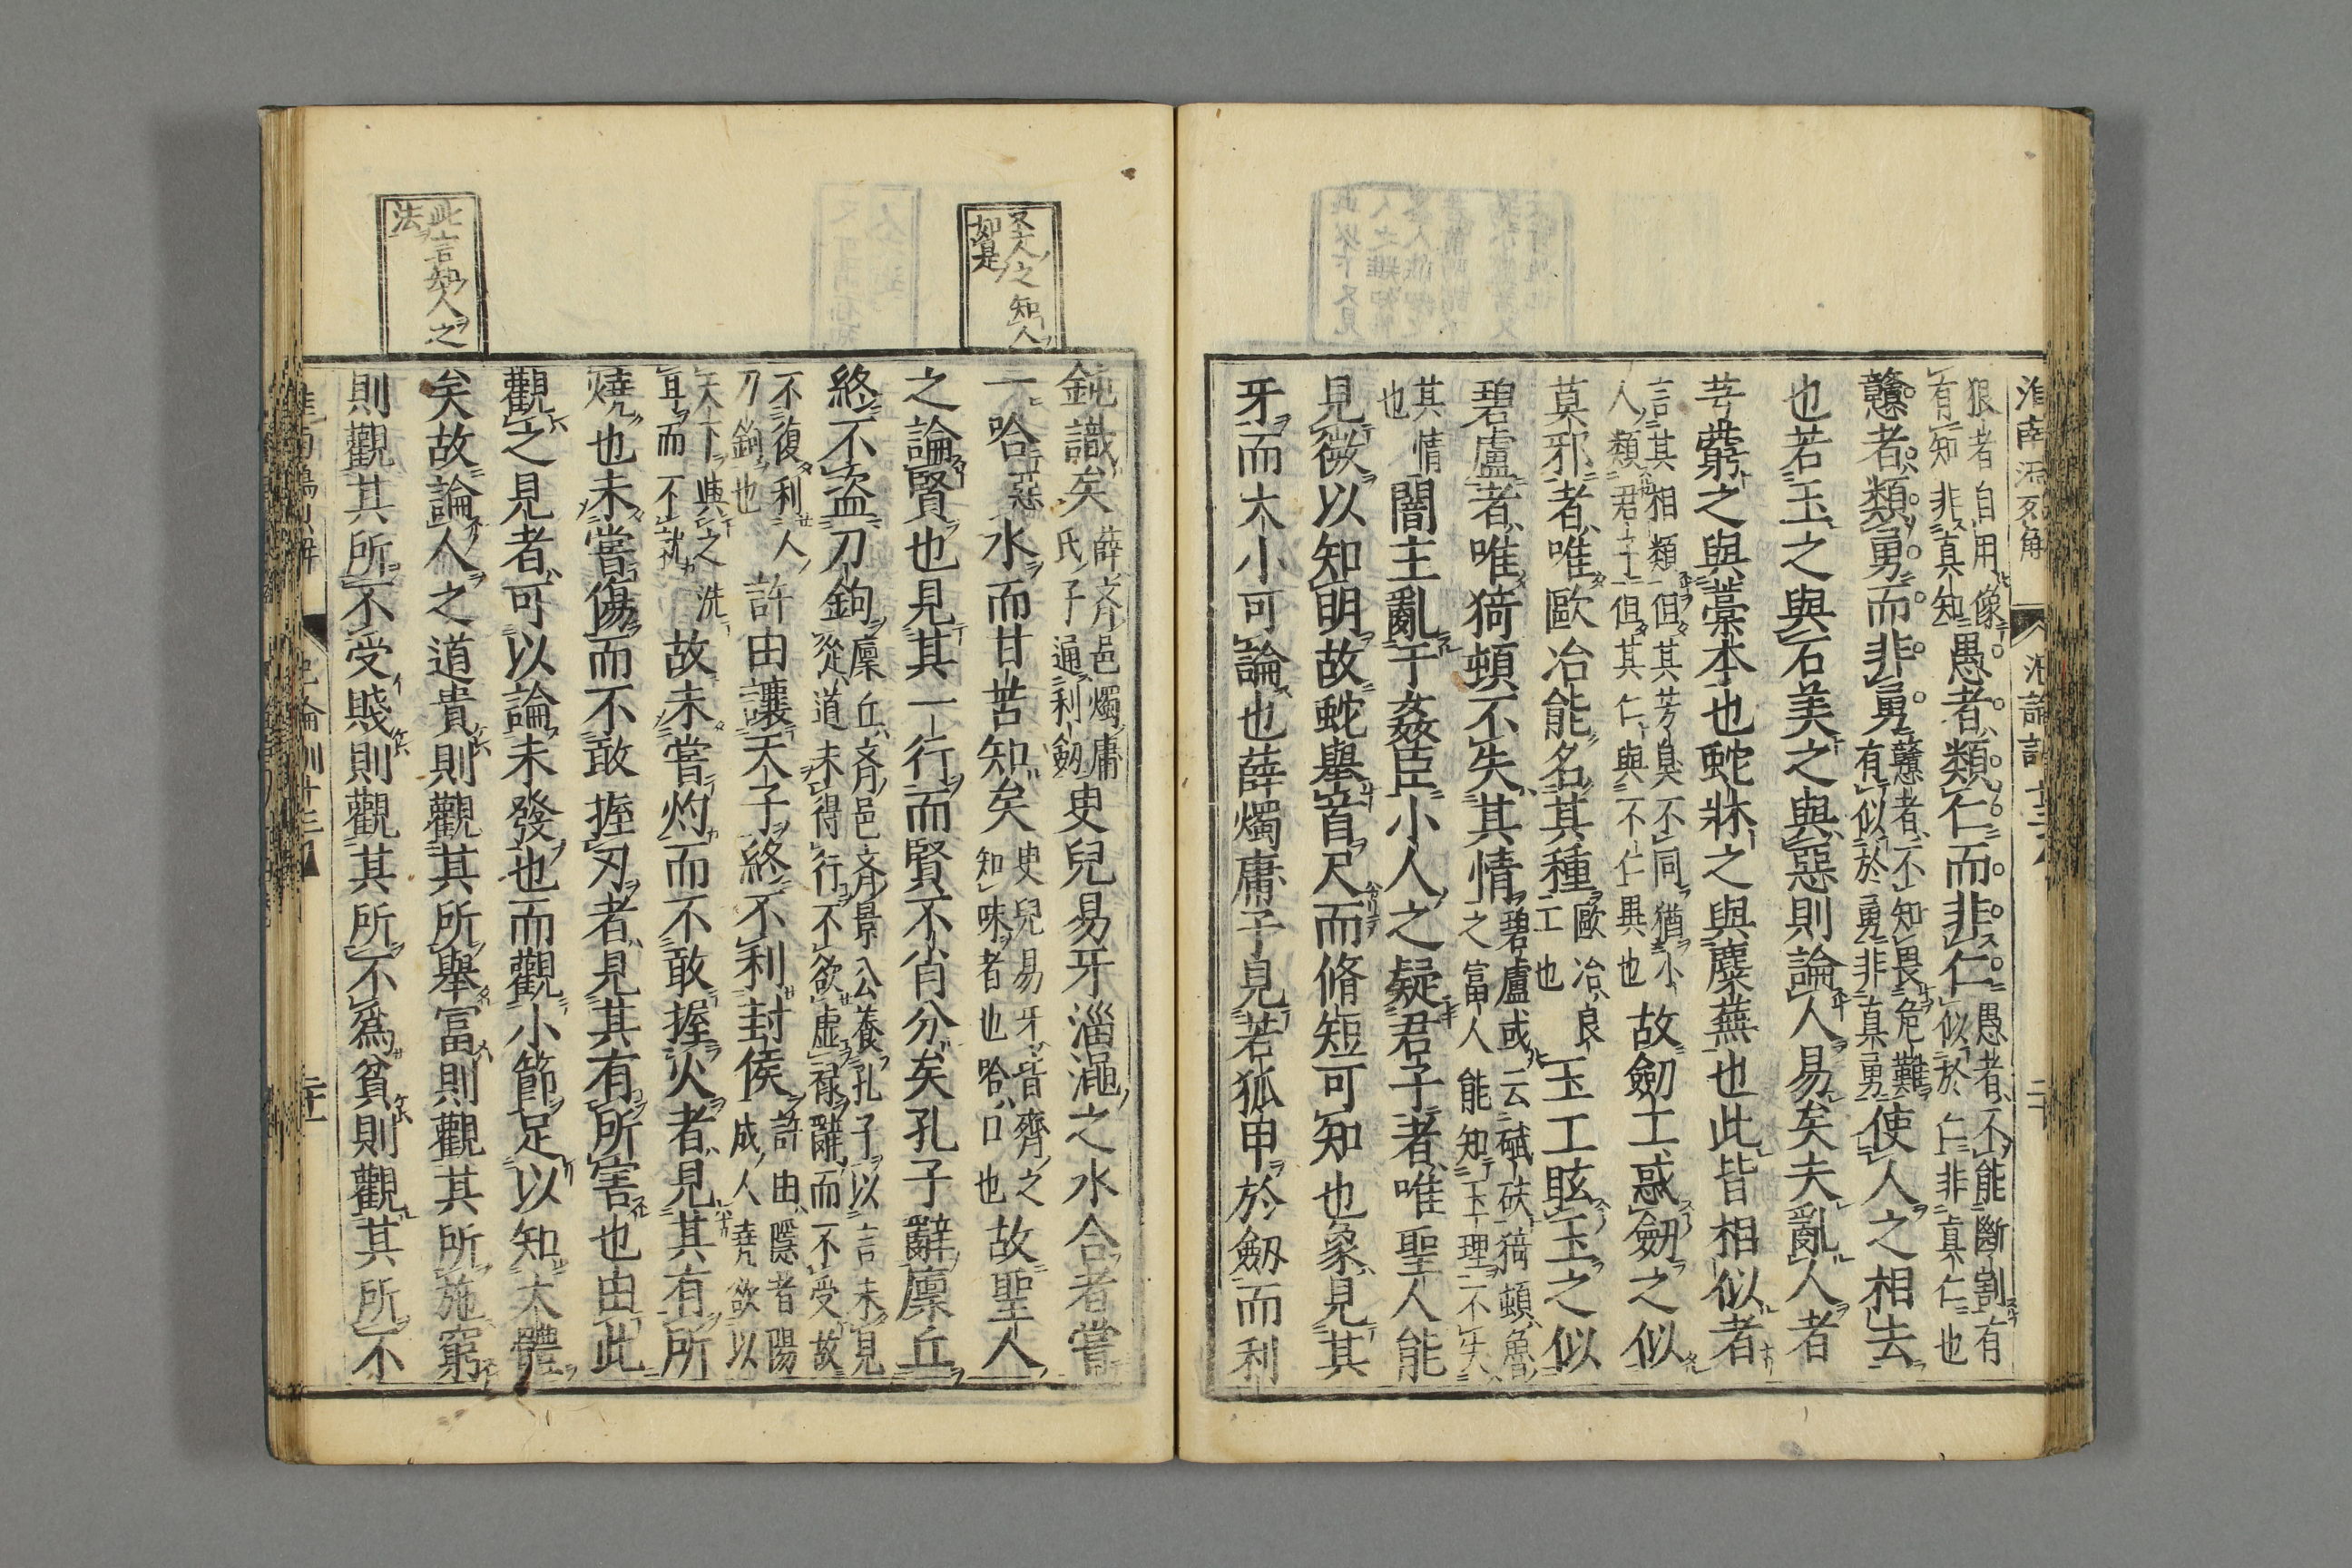 狠者自用像
有知非真知
愚者類仁而非仁
愚者不能斷割有
似於仁非真仁也
戇者類勇而非勇
戇者不知畏危難
有似於勇非真勇
使人之相去
也若玉之與石美之與惡則論人易矣夫亂人者
芎藭之與藁本也蛇牀之與麋蕪也此皆相似者
言其相類但其芳臭不同猶小
人類君子但其仁與不仁異也
故劒工惑劒之似
莫邪者唯歐冶能名其種
歐冶良
工也
玉工眩玉之似
碧盧者唯猗頓不失其情
碧盧或云碔砆猗頓魯
之富人能知玉理不失
其情
也
闇主亂于姦臣小人之疑君子者唯聖人能
見微以知明故蛇舉首尺而脩短可知也象見其
牙而大小可論也薛燭庸子見若狐甲於劒而利
又人之知人
如是
鈍識矣
薛齊邑燭庸
氏子通利劒
臾兒易牙淄澠之水合者嘗
一哈水而甘苦知矣
臾兒易牙皆齊之
知味者也哈口也
故聖人
之論賢也見其一行而賢不肖分矣孔子辭廩丘
終不盜刀鉤
廩丘齊邑齊景公養孔子以言未見
從道未得行不欲虛祿辭而不受故
不復利人
刀鉤也
許由讓天子終不利封侯
許由隱者陽
成人堯欲以
天下與之洗
耳而不就
故未嘗灼而不敢握火者見其有所
燒也未嘗傷而不敢握刃者見其有所害也由此
觀之見者可以論未發也而觀小節足以知大體
此言知人之
法
矣故論人之道貴則觀其所舉富則觀其所施窮
則觀其所不受賤則觀其所不為貧則觀其所不